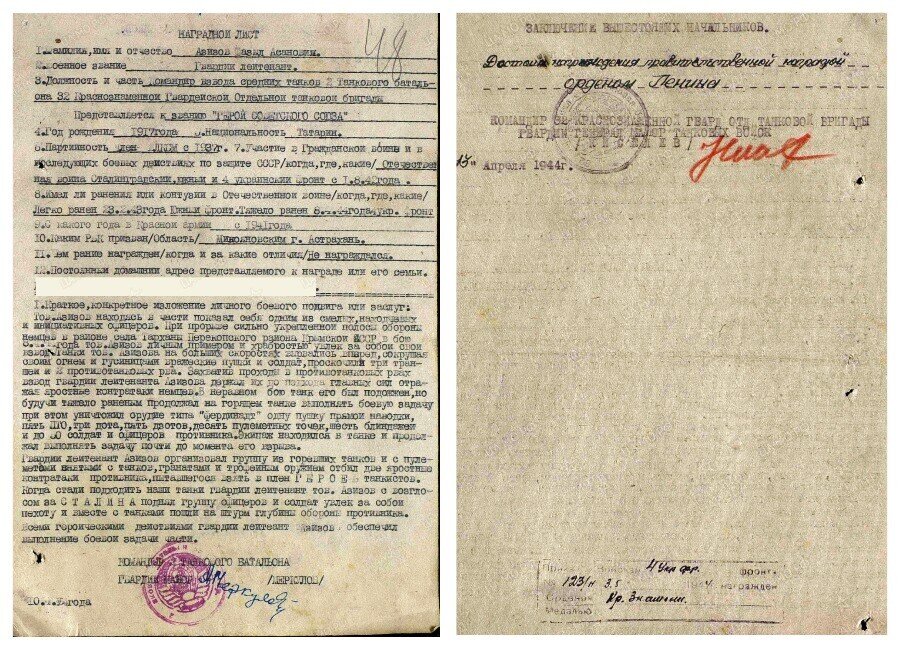 НАГРАДНОЙ ЛИСТ
1.Фамилия,имя и отчество Азизов Фазыл Асанович.
2.Военное звание Гвардии лейтенант.
3.Должность и часть Командир взвода средних танков 2 Танкового баталь-
она 32 Краснознаменной Гвардейской Отдельной танковой бригады
Представляется к званию "ГЕРОЙ СОВЕТСКОГО СОЮЗА"
4.Год рождения 1917года 5.Национальность Татарин.
6.Партийность член ВЛКСМ с 1937г. 7.Участие в Гражданской войны и в
последующих боевых действиях по защите СССР/когда,где,какие/ Отечествен
ная война Сталинградский,южный и 4 украинский фронт с
8.Имел ли ранения или контузии в Отечественной войне/когда,где,какие/
Легко ранен 23.2.43года Южный Фронт.Тяжело ранен 8.4.44года4укр. фронт
9.С какого года в Красной армии с 1941года
10.Каким РВК призван/Область/ г. Астрахань.
11.Чем ранее награжден/когда и за какие отличия/Не награждался.
12.Постоянный домашний адрес представляемого к награде или его семьи.
1.Краткое,конкретное изложение личного боевого подвига или заслуг:
Тов.Азизов находясь в части показал себя одним из смелых,находчивых
и инициативных офицеров. При прорыве сильно укрепленной полосы обороны
немцев в районе села Тархан Перекопского района Крымской АССР в бою
года тов.Азизов личным примером и храбростью увлек за собой свой
взвод.Танки тов. Азизова на больших скоростях вырвались вперед,сокрушая
своим огнем и гусеницами вражеские пушки и солдат,проскочили три тран-
шеи и противотанковых рва. Захватив проходы в противотанковых рвах
взвод гвардии лейтенанта Азизова держал их до подхода главных сил отра-
жая яростные контратаки немцев.В неравном бою танк его был подожжен,но
будучи тяжело раненым продолжал на горящем танке выполнять боевую задачу
при этом уничтожил орудие типа "Фердинанд" одну пушку прямой наводки,
пять ПТО,три дота,пять дзотов,десять пулеметных точек,шесть блиндажей
и до 80 солдат и офицеров противника.Экипаж находился в танке и продол-
жал выполнять задачу почти до момента его взрыва.
Гвардии лейтенант Азизов организовал группу из горевших танков и с пуле-
метами взятыми с танков,гранатами и трофейным оружием отбил две яростные
контратаки противника,пытавшегося взять в плен ГЕРОЕВ танкистов.
Когда стали подходить наши танки гвардии лейтенант тов. Азизов с возгло-
сом за СТАЛИНА поднял группу офицеров и солдат увлек за собой
пехоту и вместе с танками пошли на штурм глубины обороны противника.
Всеми героическими действиями гвардии лейтенант Азизов обеспечил
выполнение боевой задачи части.
КОМАНДИР 2 ТАНКОВОГО БАТАЛЬОНА
ГВАРДИИ МАЙОР /МЕРКУЛОВ/
года
48
ЗАКЛЮЧЕНИЕ ВЫШЕСТОЯЩИХ НАЧАЛЬНИКОВ.
Достоин награждения правительственной наградой
орденом Ленина
КОМАНДИР 32 КРАСНОЗНАМЕННОЙ ГВАРД ОТД ТАНКОВОЙ БРИГАДЫ
ГВАРДИИ ГЕНЕРАЛ МАЙОР ТАНКОВЫХ ВОЙСК
Апреля 1944г.
Приказ войскам 4 Укр фр. фронта
№ 123/н 3.5 награжден
Орденом Кр. Знамени.
Медалью